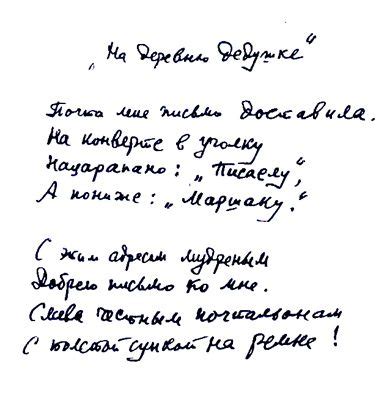 „На деревню дедушке“
Почта мне письмо доставила.
На конверте в уголку
Нацарапано: „Писаелу“,
А пониже: „Маршаку.“
С этим адресом мудреным
Добрело письмо ко мне.
Слава честным почтальонам
С толстой сумкой на ремне!